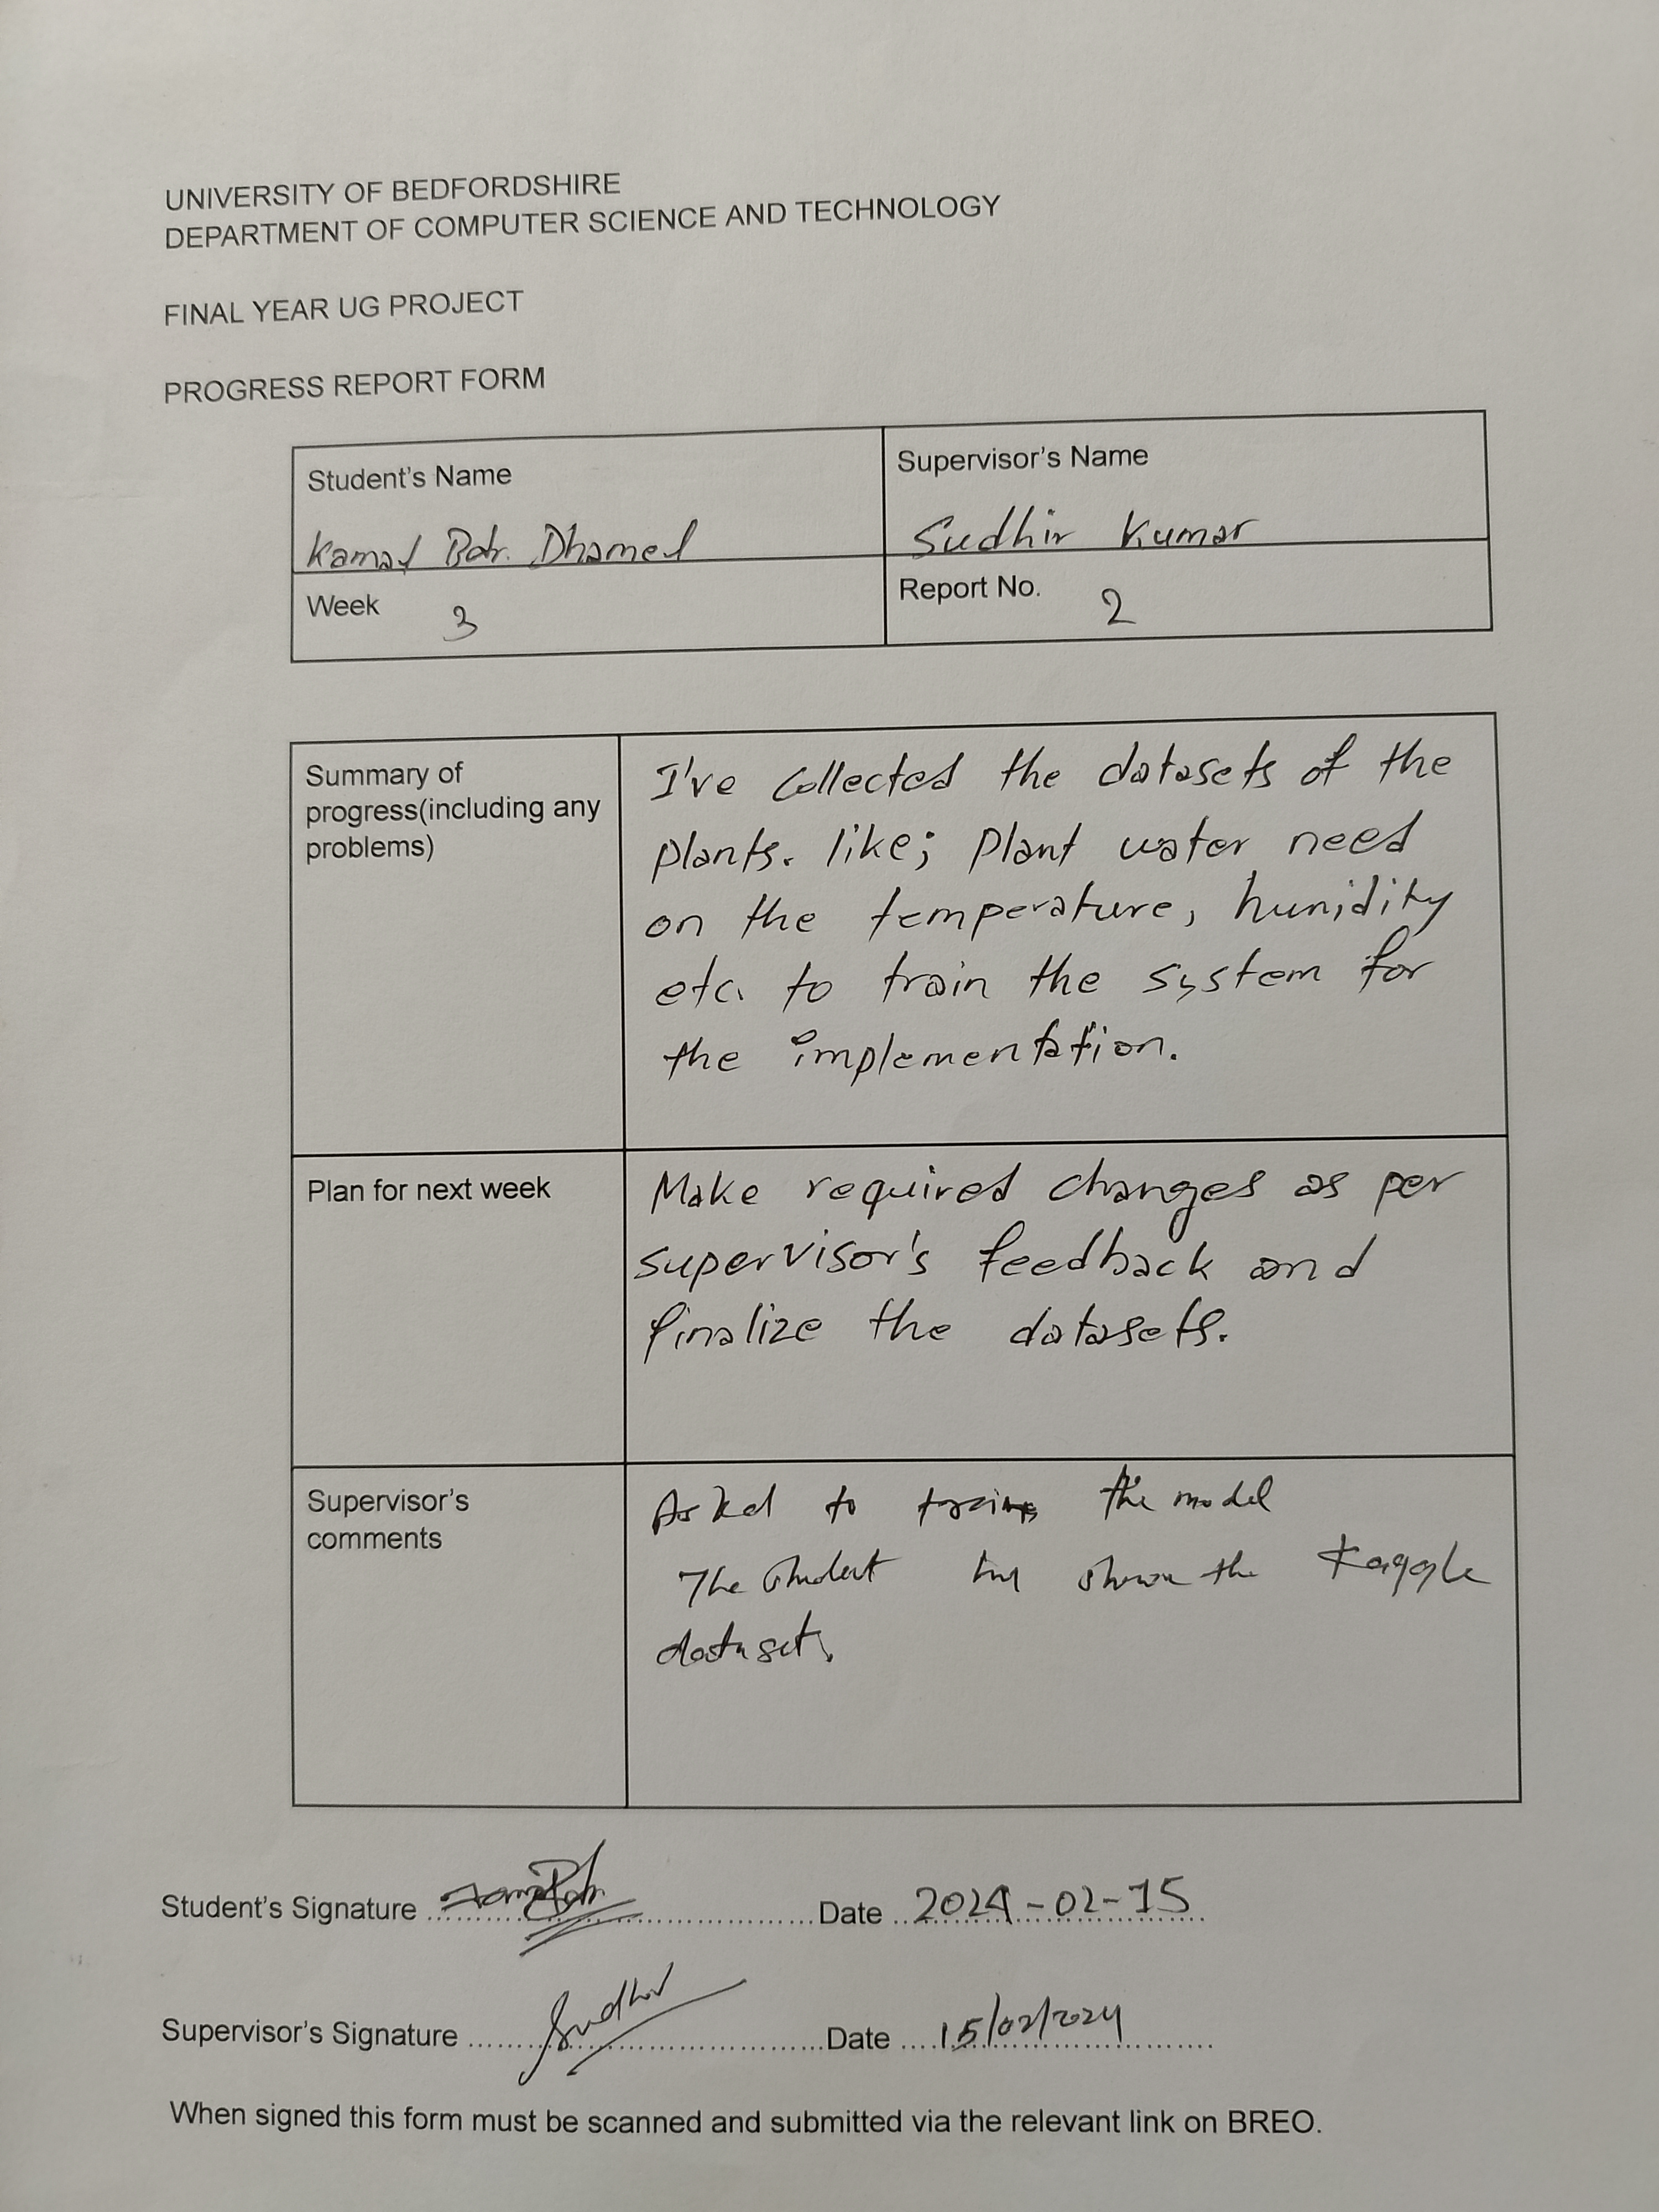 UNIVERSITY OF BEDFORDSHIRE
DEPARTMENT OF COMPUTER SCIENCE AND TECHNOLOGY
FINAL YEAR UG PROJECT
PROGRESS REPORT FORM
Student's Name
Kamal Bdr. Dhamel
Supervisor's Name
Sudhir Kumar
Week 3
Report No. 2
Summary of
progress(including any
problems)
I've collected the datasets of the
plants. like; plant water need
on the temperature, hunidity
etc. to train the system for
the implementation.
Plan for next week
Make required changes as per
supervisor's feedback and
finalize the datasets.
Supervisor's
comments
Asked to train the model
The student has shown the Kaggle
dataset.
Student's Signature Date 2024-02-15
Supervisor's Signature Sudhir Date 15/02/2024
When signed this form must be scanned and submitted via the relevant link on BREO.